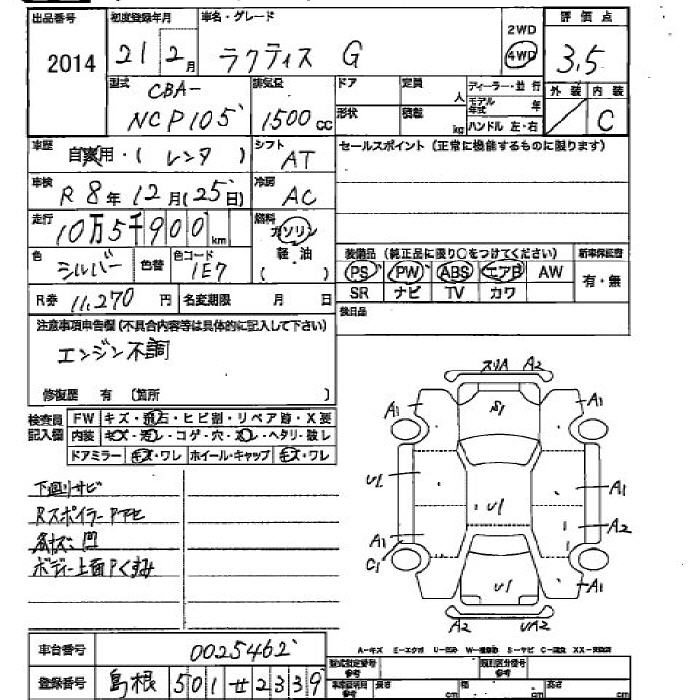 出品番号 初度登録年月 車名・グレード 評価点
2014 21 2月 ラクティス G 2WD 4WD 3.5
型式 CBA- NCP105 排気量 1500cc ドア 定員 人 ディーラー・並行 外装 内装
形状 積載 kg モデル年式 年 ハンドル 左・右 C
車歴 自家用・(レンタ) シフト AT セールスポイント (正常に機能するものに限ります)
車検 R8年12月(25日) 冷房 AC
走行 10万5千900km 燃料 ガソリン 軽・油 ( )
色 シルバー 色替 色コード 1E7 装備品 (純正品に限り○をつけてください) 新車保証書
PS PW ABS エアB AW 有・無
R券 11,270円 名変期限 月 日 SR ナビ TV カワ
注意事項申告欄 (不具合内容等は具体的に記入して下さい) 後日品
エンジン不調
修復歴 有 〔箇所 〕
検査員記入欄 FW キズ・飛石・ヒビ割・リペア跡・X要
内装 キズ・汚レ・コゲ・穴・スレ・ヘタリ・破レ
ドアミラー キズ・ワレ ホイール・キャップ キズ・ワレ
下廻リサビ
Rスポイラー
凹
ボデー上面Pくすみ
スリA A2
A1 S1 A1
U1 U1 A1
A2
A1
C1 U1 A1
A2 UA2
車台番号 0025462
A-キズ E-エクボ U-凹み W-補修跡 S-サビ C-腐食 XX-交換済
登録番号 島根 501 せ 2339
型式指定番号 参考 類別区分番号 参考
長さ cm 幅 cm 高さ cm